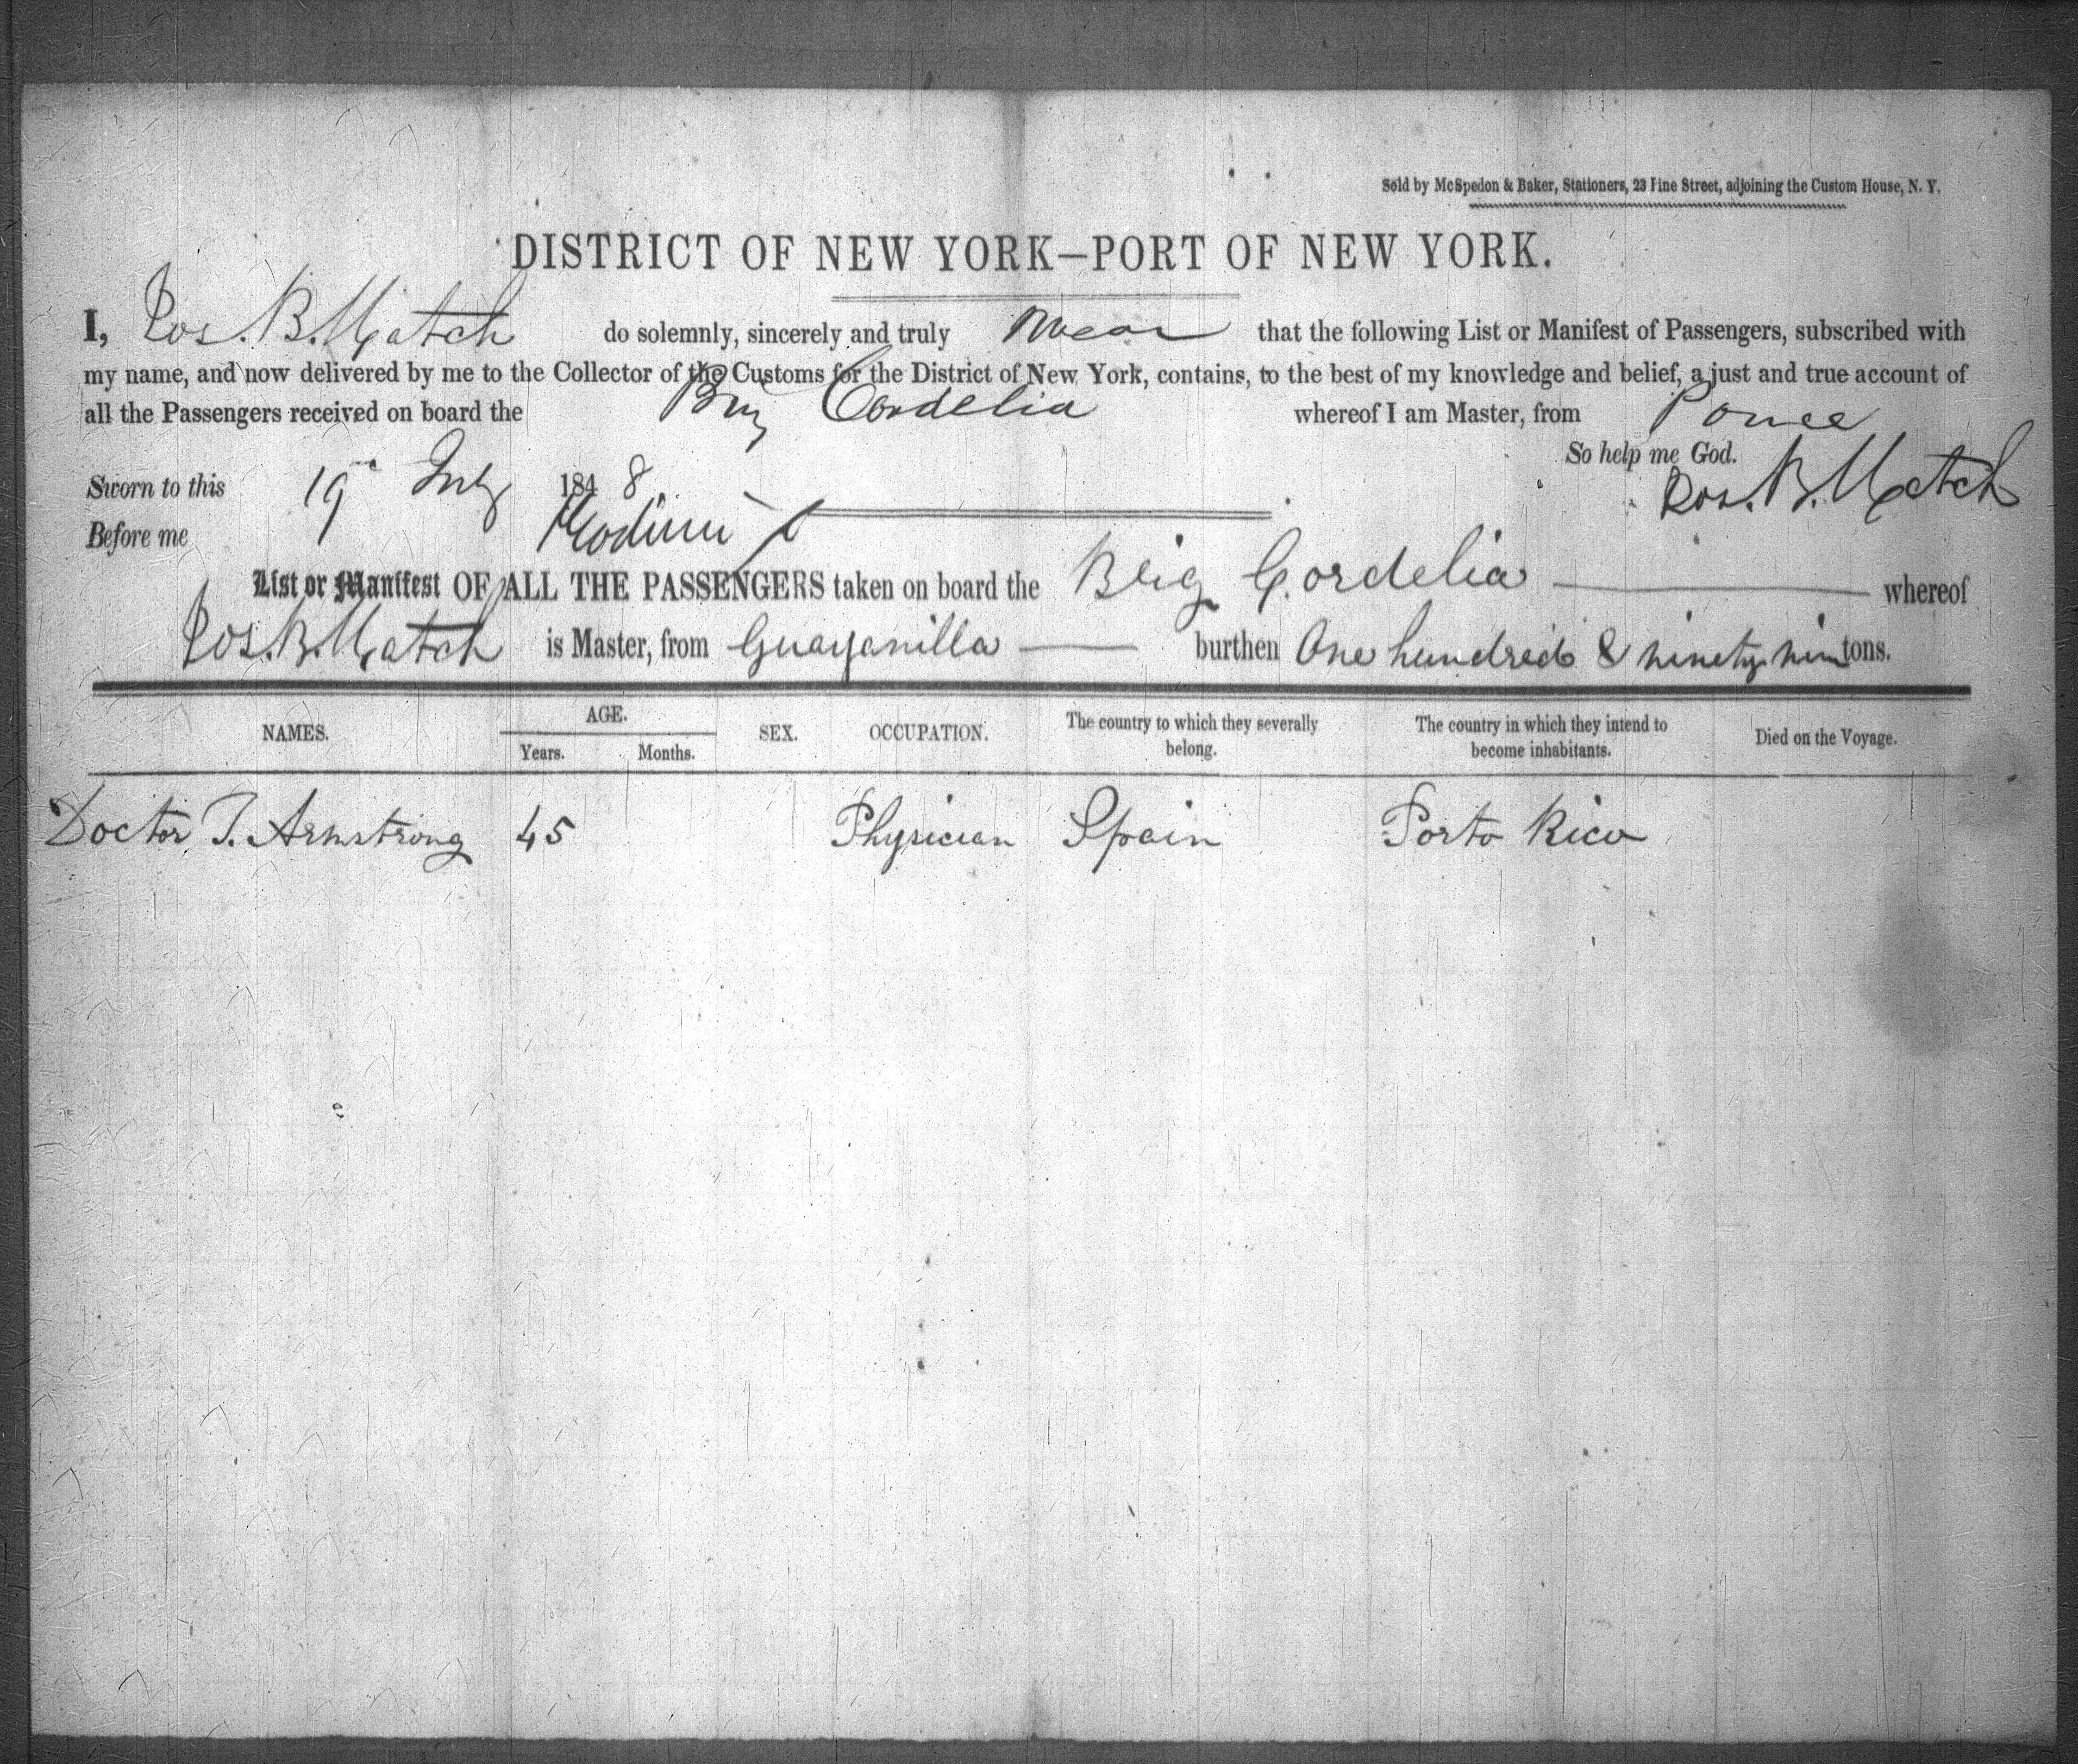 Sold by McSpedon & Baker, Stationers, 23 Pine Street, adjoining the Custom House, N. Y.
DISTRICT OF NEW YORK—PORT OF NEW YORK.
I, Ros. B. Hatch do solemnly, sincerely and truly swear that the following List or Manifest of Passengers, subscribed with
my name, and now delivered by me to the Collector of the Customs for the District of New York, contains, to the best of my knowledge and belief, a just and true account of
all the Passengers received on board the Brig Cordelia whereof I am Master, from Ponce
So help me God.
Sworn to this 19 July 1848. Ros. B. Hatch
Before me
List or Manifest OF ALL THE PASSENGERS taken on board the Brig Cordelia whereof
Ros. B. Hatch is Master, from Guayanilla burthen One hundred & ninety nine tons.
NAMES. AGE. SEX. OCCUPATION. The country to which they severally belong. The country in which they intend to become inhabitants. Died on the Voyage.
Years. Months.
Doctor T. Armstrong 45 Physician Spain Porto Rico